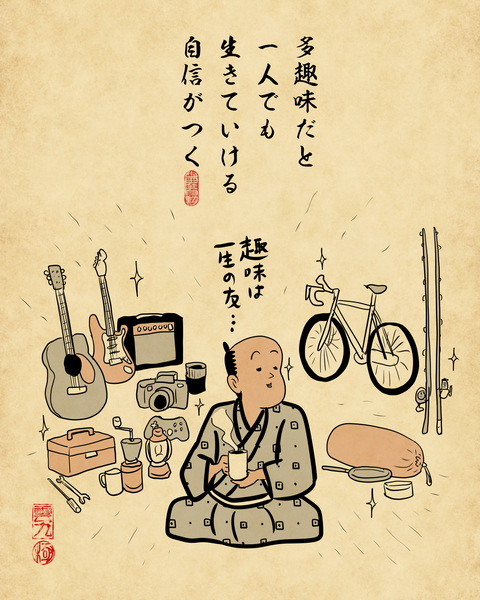 多趣味だと
一人でも
生きていける
自信がつく
趣味は
一生の友…